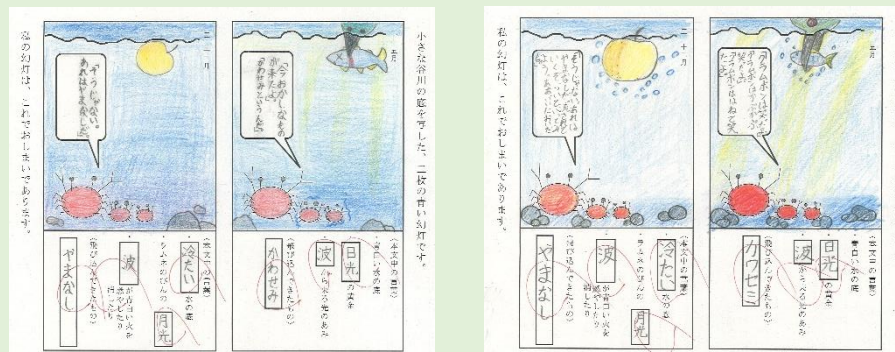 小さな谷川の底を写した、二枚の青い幻灯です。
五月
「今おかしなもの
が来たよ。」
「かわせみというんだ」
(本文中の言葉)
・青白い水の底
・日光の黄金
・波から来る光のあみ
(飛び込んできたもの)
かわせみ
十二月
「そうじゃない。
あれはやまなしだ。」
(本文中の言葉)
・冷たい水の底
・ラムネのびんの月光
・波が青白い火を
燃やしたり
消したり
(飛び込んできたもの)
やまなし
私の幻灯は、これでおしまいであります。
五月
クラムボンは笑ったよ
クラムボンはかぷかぷ
笑ったよ
クラムボンははねて笑
ったよ
(本文中の言葉)
・青白い水の底
・日光の黄金
・波から来る光のあみ
(飛び込んできたもの)
カワセミ
十二月
そうじゃないあれは
やまなしだ
(本文中の言葉)
・冷たい水の底
・ラムネのびんの月光
・波が青白い火を
燃やしたり
消したり
(飛び込んできたもの)
やまなし
私の幻灯は、これでおしまいであります。